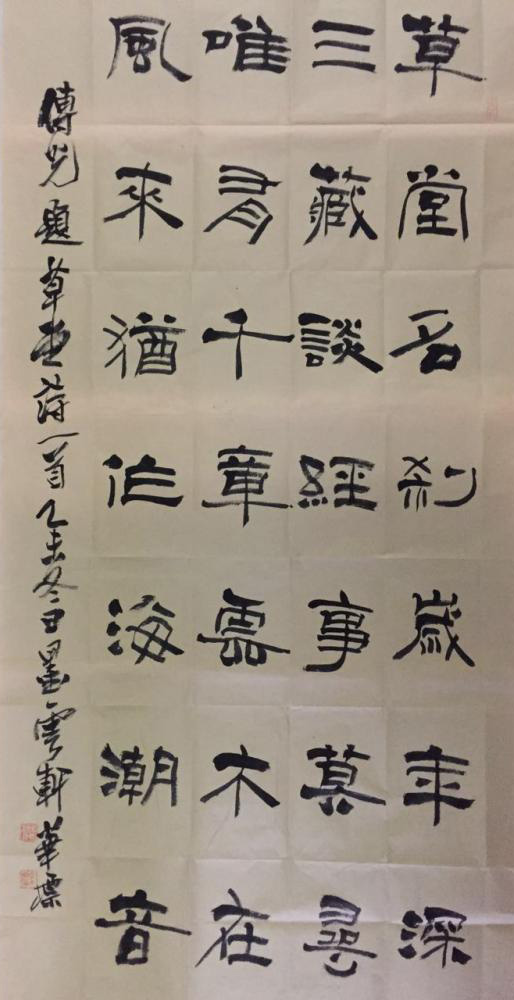 草堂名刹歲年深
三藏談經事莫尋
唯有千章雲木在
風來猶作海潮音
傅光題草堂詩一首乙未冬日墨雲軒華標